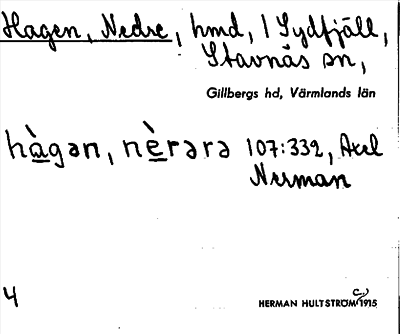 Hagen, Nedre, hmd, 1 Sydfjäll,
Stavnäs sn,
Gillbergs hd, Värmlands län
hàgən, nèrərə 107:332, Axel
Nerman
4
HERMAN HULTSTRÖM 1915